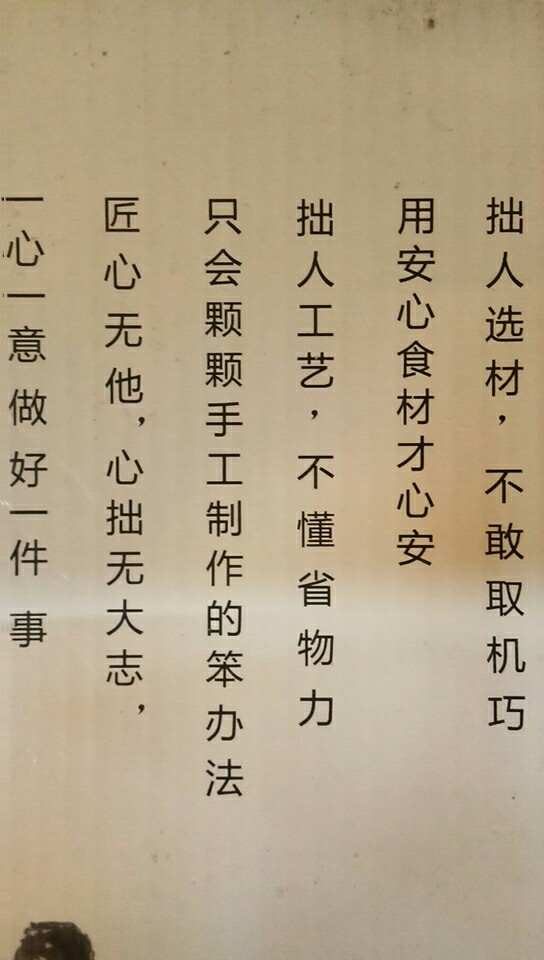 拙人选材，不敢取机巧
用安心食材才心安
拙人工艺，不懂省物力
只会颗颗手工制作的笨办法
匠心无他，心拙无大志，
一心一意做好一件事